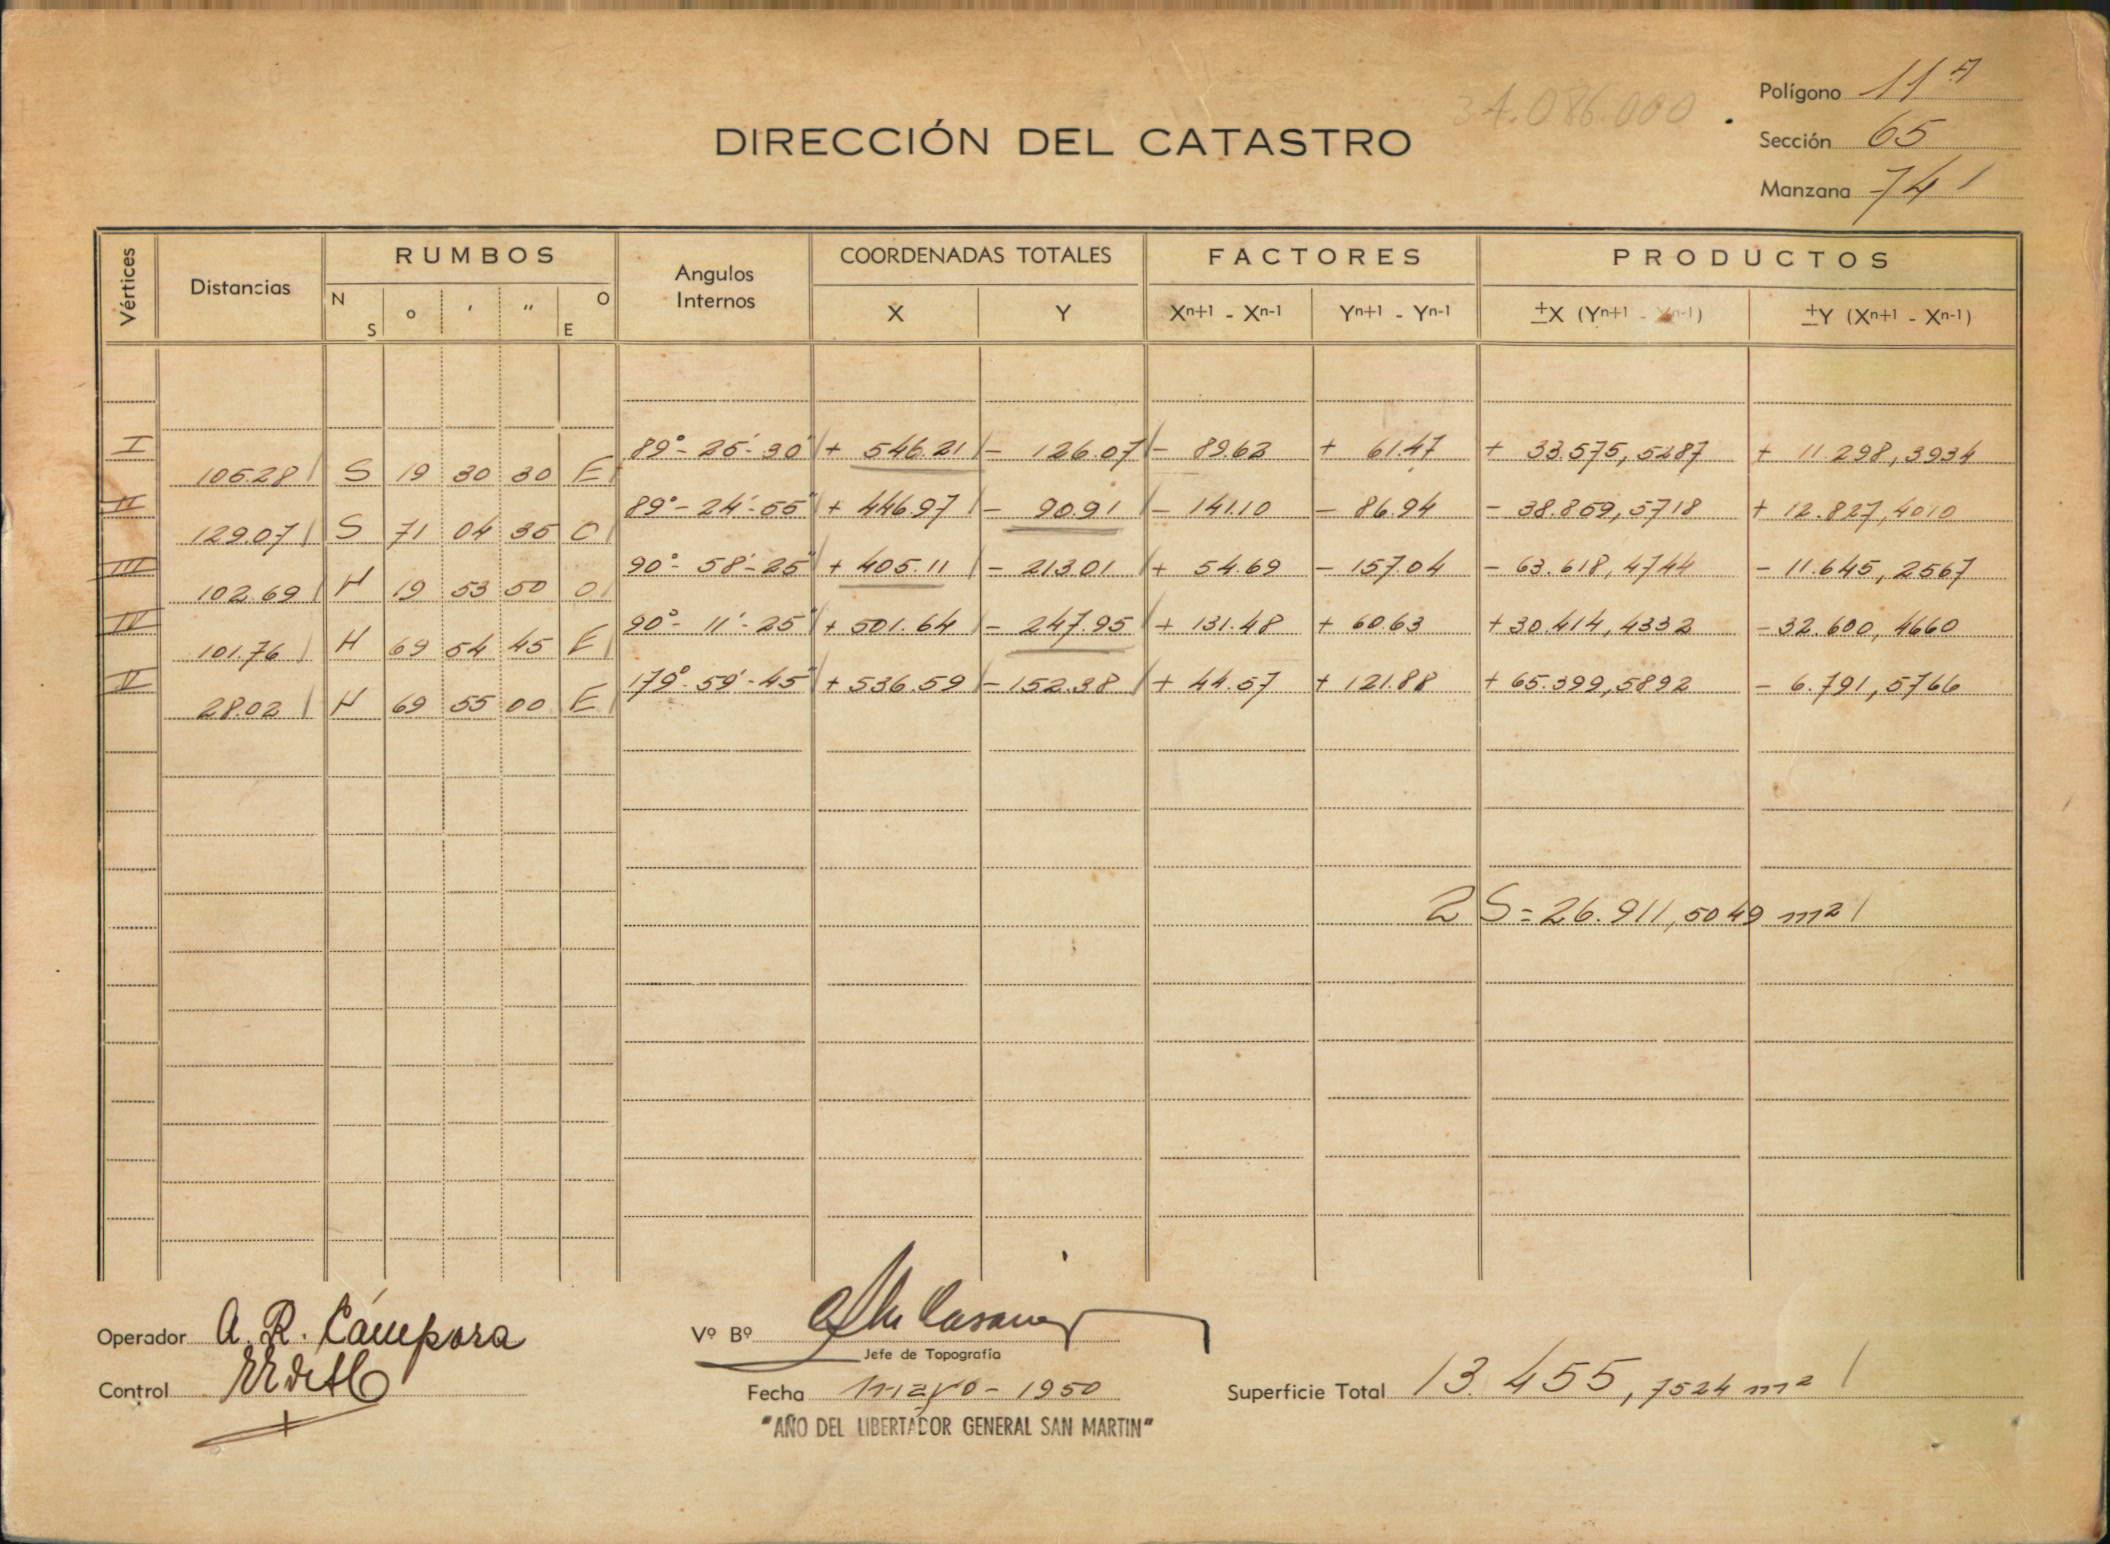 34.086.000
Polígono 11ª
DIRECCIÓN DEL CATASTRO
Sección 65
Manzana 741
Vértices Distancias RUMBOS Angulos Internos COORDENADAS TOTALES FACTORES PRODUCTOS
N S ° ' " E O X Y Xn+1 - Xn-1 Yn+1 - Yn-1 ±X (Yn+1 - Yn-1) ±Y (Xn+1 - Xn-1)
I 89°-25'-30" + 546.21 - 126.07 - 89.62 + 61.47 + 33.575,5287 + 11.298,3934
105.28 S 19 30 30 E
II 89°-24'-55" + 446.97 - 90.91 - 141.10 - 86.94 - 38.859,5718 + 12.827,4010
129.07 S 71 04 35 O
III 90°-58'-25" + 405.11 - 213.01 + 54.67 - 157.04 - 63.618,4744 - 11.645,2567
102.69 N 19 53 50 O
IV 90°-11'-25" + 501.64 - 247.95 + 131.48 + 60.63 + 30.414,4332 - 32.600,4660
101.76 N 69 54 45 E
V 179°-59'-45" + 536.59 - 152.38 + 44.57 + 121.88 + 65.399,5892 - 6.791,5766
28.02 N 69 55 00 E
2 S = 26.911,5049 m2
Operador A. R. Cámpora
Vº Bº
Jefe de Topografía
Control
Fecha mayo - 1950
Superficie Total 13.455,7524 m2
"AÑO DEL LIBERTADOR GENERAL SAN MARTIN"